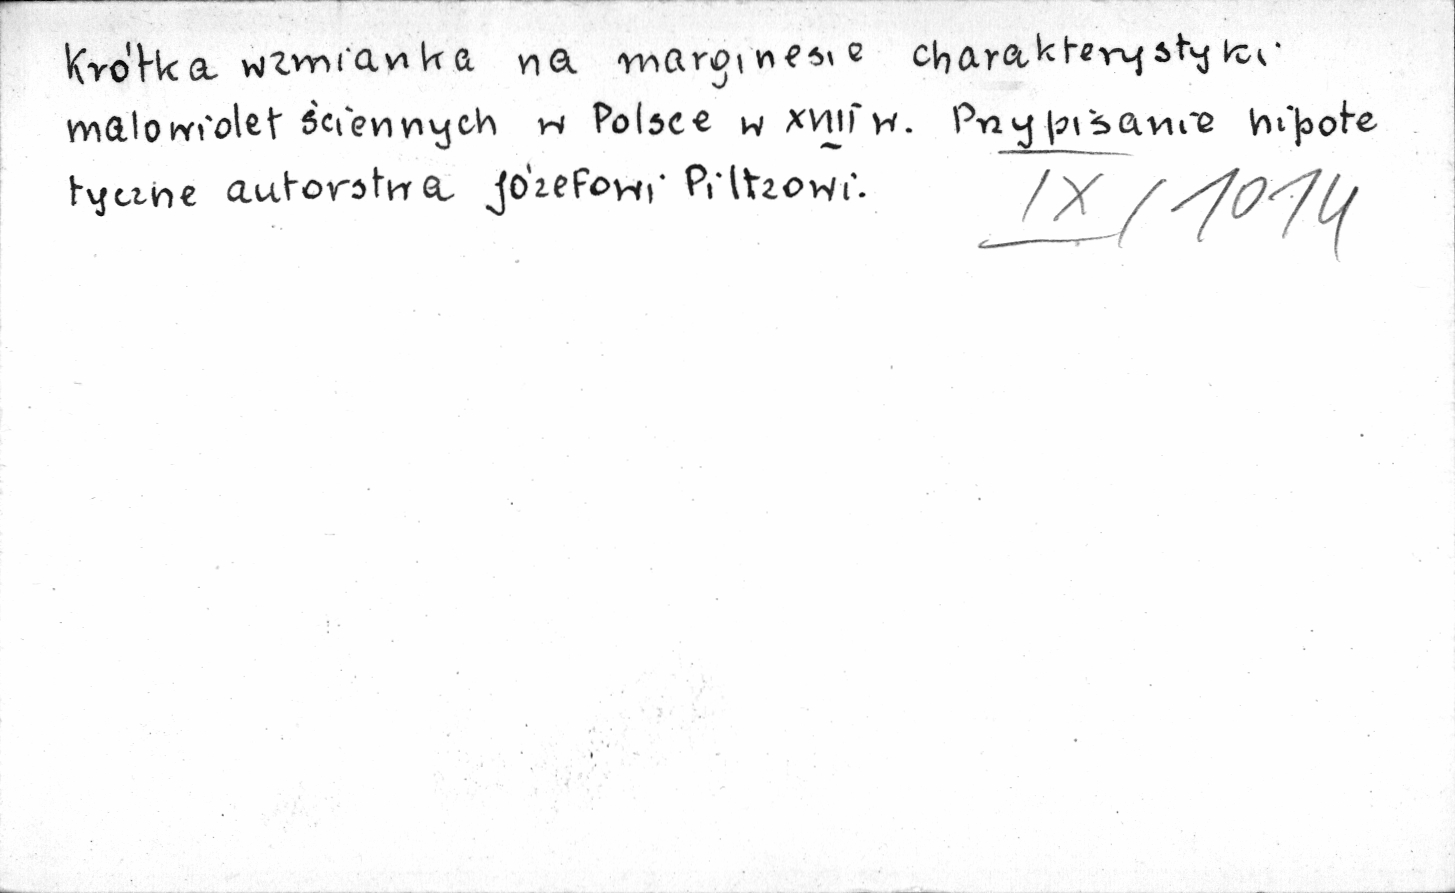 Krótka wzmianka na marginesie charakterystyki
malowideł ściennych w Polsce w XVIII w. Przypisanie hipote
tyczne autorstwa Józefowi Piltzowi.
IX/1014